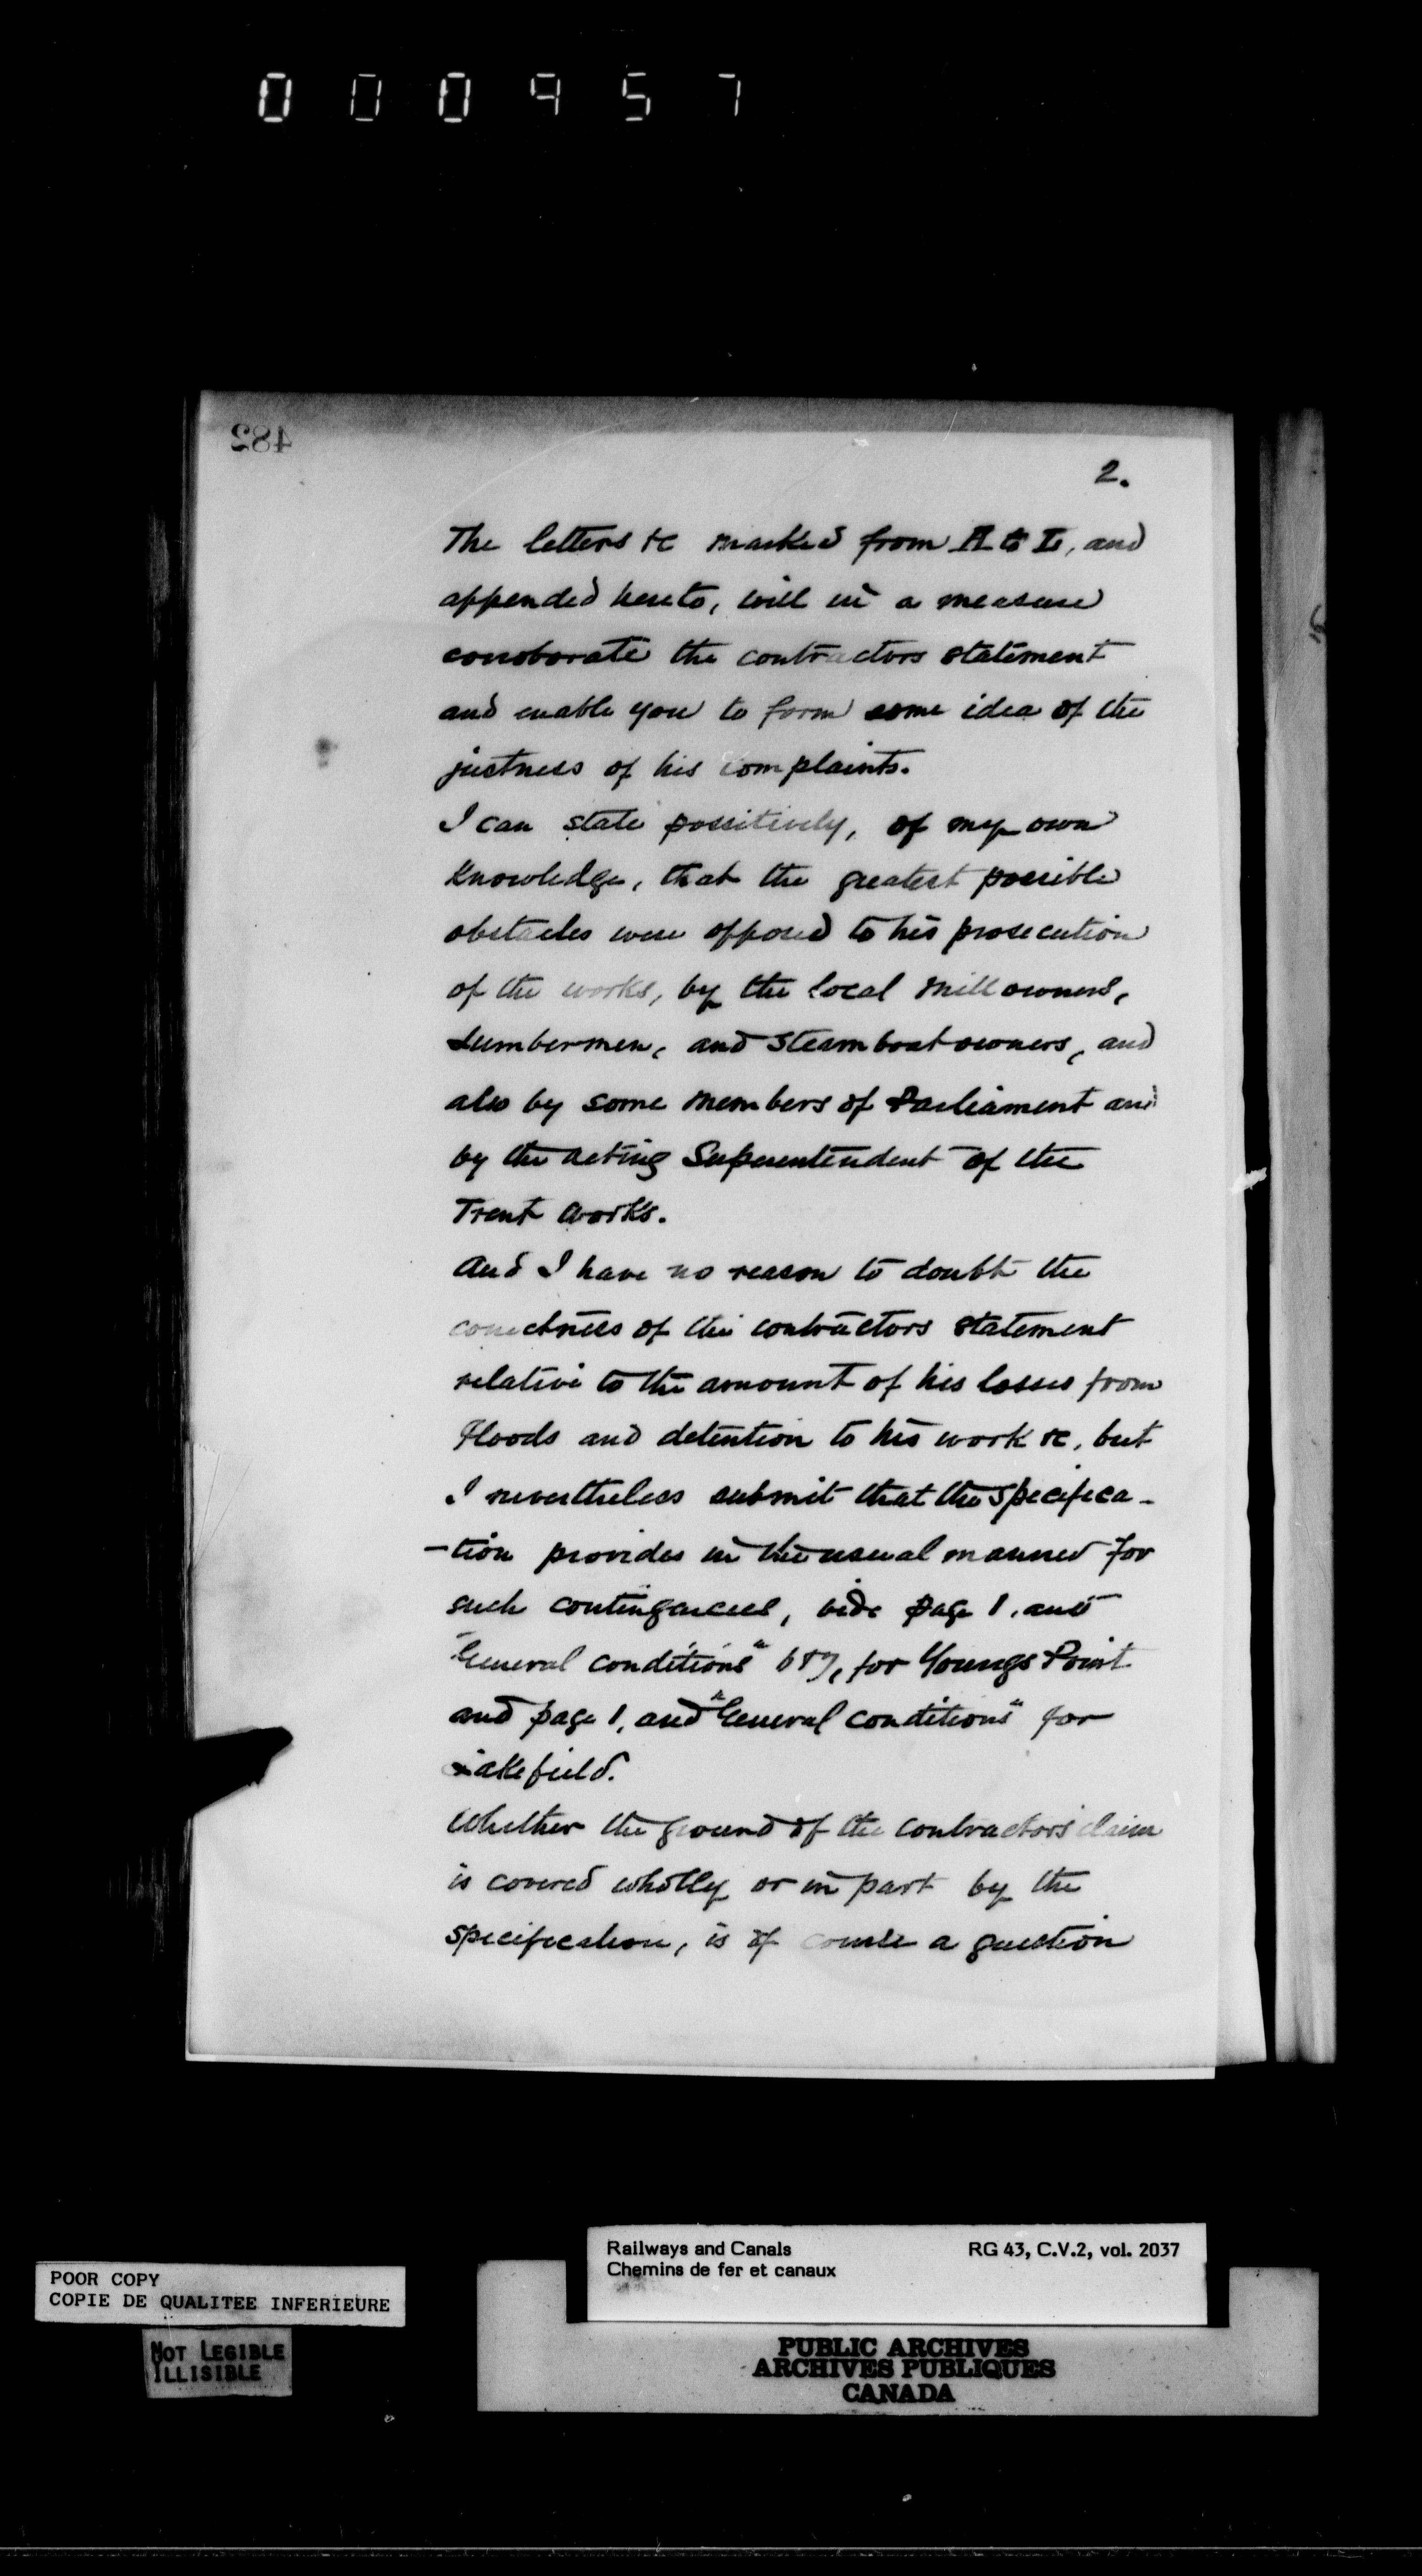 000957
482
2.
The letters &c marked from A to I, and
appended hereto, will in a measure
corroborate the contractors statement
and enable you to form some idea of the
justness of his complaints.
I can state possitively, of my own
knowledge, that the greatest possible
obstacles were opposed to his prosecution
of the works, by the local mill owners,
Lumbermen, and Steamboat owners, and
also by some members of Parliament and
by the acting Superentendent of the
Trent works.
And I have no reason to doubt the
correctness of the contractors statement
relative to the amount of his losses from
Floods and detention to his work &c, but
I nevertheless submit that the specifica-
-tion provides in the usual manner for
such contingencies, vide page 1, and
"General conditions" 6 & 7, for Youngs Point
and page 1, and "General conditions" for
Lakefield.
Whether the ground of the contractors' claim
is covered wholly or in part by the
specification, is of course a question
Railways and Canals RG 43, C.V.2, vol. 2037
Chemins de fer et canaux
POOR COPY
COPIE DE QUALITEE INFERIEURE
NOT LEGIBLE
ILLISIBLE
PUBLIC ARCHIVES
ARCHIVES PUBLIQUES
CANADA